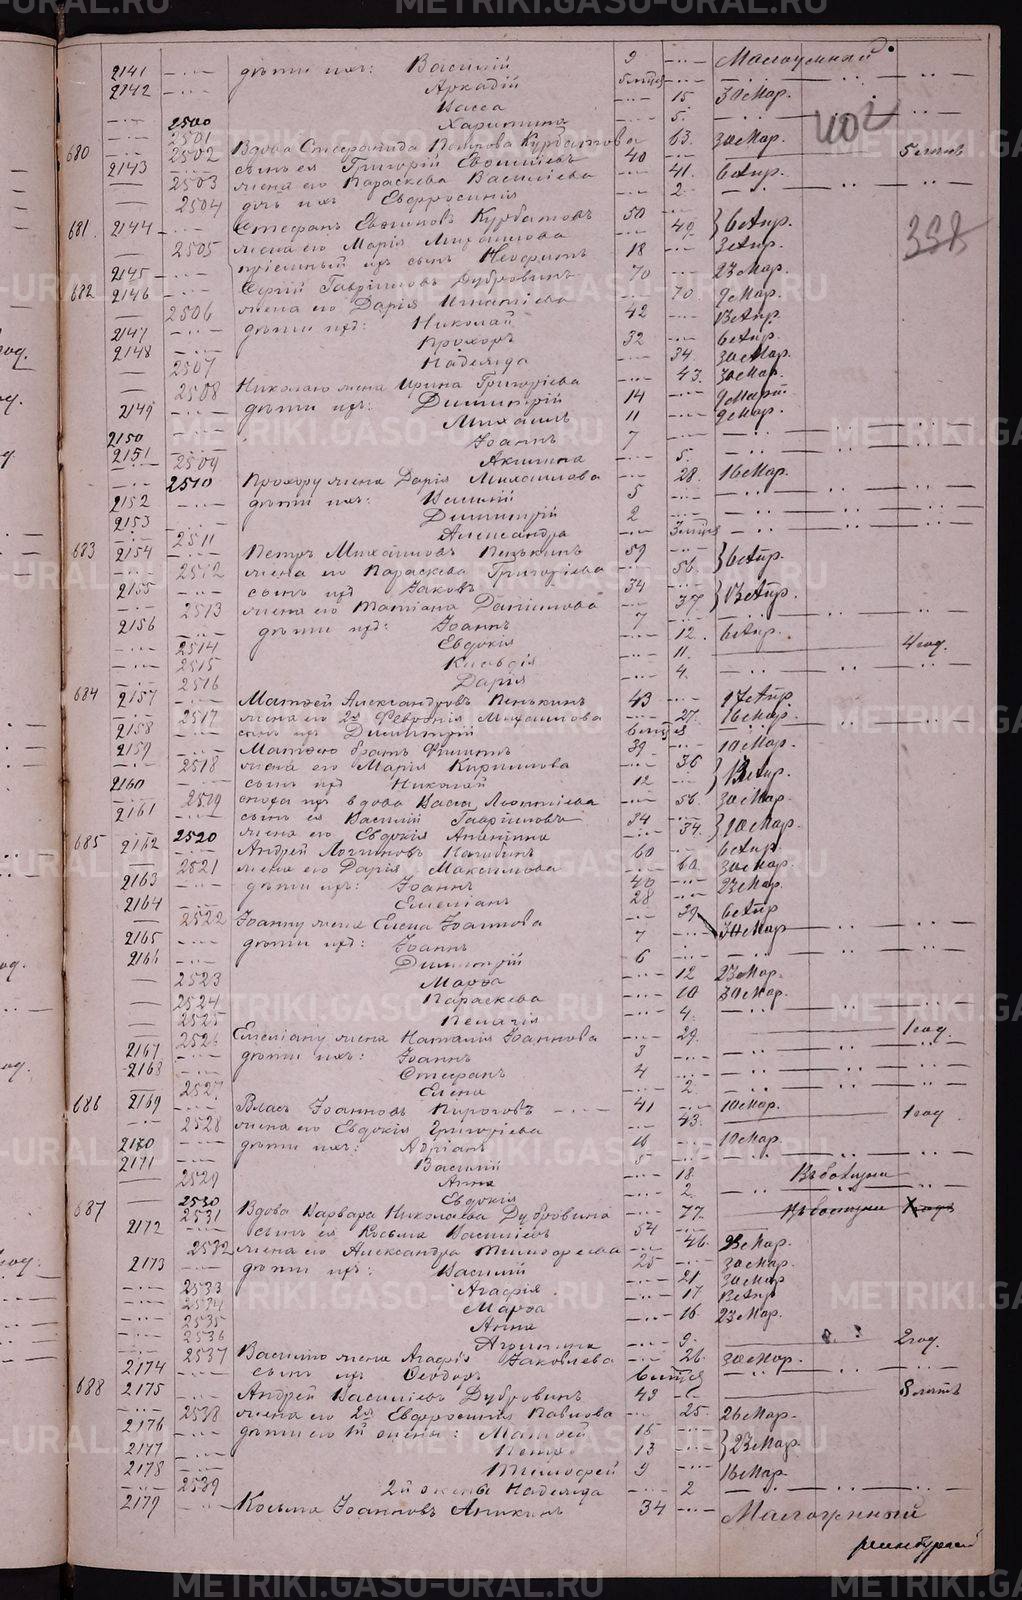 2141 дѣти ихъ: Василій 9 Малоумный
2142 Аркадій 5 мѣсяц
Васса 15 30 Мар.
2500 Харитина 5.
402
680 2501 Вдова Стефанида Петрова Курбатова 63. 30 Мар.
2143 2502 сынъ ея Григорій Евфиміевъ 40 5 лѣтъ
2503 жена его Параскева Васильева 41. 6 Апр.
2504 дочь ихъ Евфросинія 2
681 2144 Стефанъ Евфимовъ Курбатовъ 50 6 Апр.
2505 жена его Марія Михаилова 49.
358
2145 пріемный ихъ сынъ Неофитъ 18 3 Апр.
682 2146 Сергій Гавріиловъ Дубровинъ 70 23 Мар.
2506 жена его Дарія Игнатіева 70 9 Мар.
2147 дѣти ихъ: Николай 42 13 Апр.
2148 Прохоръ 32 6 Апр.
2507 Надежда 34. 30 Мар.
2508 Николаю жена Ирина Григоріева 43. 30 Мар.
2149 дѣти ихъ: Димитрій 14 9 Март
2150 Михаилъ 11 9 Мар.
2151 Іоаннъ 7
2509 Акилина 5.
2510 Прохору жена Дарія Михаилова 28. 16 Мар.
2152 дѣти ихъ: Василій 5
2153 Димитрій 2
2511 Александра 3 мѣсяц
683 2154 Петръ Михаиловъ Пенькинъ 59 6 Апр.
2512 жена его Параскева Григоріева 56.
2155 сынъ ихъ Іаковъ 34 13 Апр.
2513 жена его Татіана Даніилова 37
2156 дѣти ихъ: Іоаннъ 7
2514 Евдокія 12. 6 Апр.
2515 Клавдія 11. 4 год.
2516 Дарія 4.
684 2157 Матѳей Александровъ Пенькинъ 43 17 Апр
2517 жена его 2я Февронія Михаилова 27. 16 Мар.
2158 сынъ ихъ Димитрій 6 мѣсяц
2159 Матѳею братъ Филиппъ 39 10 Мар.
2518 жена его Марія Кириллова 36
2160 сынъ ихъ Николай 12 13 Апр.
2519 сноха ихъ вдова Васса Леонтіева 56. 30 Мар.
2161 сынъ ея Василій Гавріиловъ 34 10 Мар.
2520 жена его Евдокія Ананіина 34.
685 2162 Андрей Логиновъ 60 6 Апр.
2521 жена его Дарія Максимова 60. 30 Мар.
2163 дѣти ихъ: Іоаннъ 40 23 Мар.
2164 Емеліанъ 28 6 Апр
2522 Іоанну жена Елена Іоаннова 39. 30 Мар
2165 дѣти ихъ: Іоаннъ 7
2166 Димитрій 6
2523 Марѳа 12 23 Мар.
2524 Параскева 10 30 Мар.
2525 Пелагія 4.
2526 Емеліану жена Наталія Іоаннова 29. 1 год
2167 дѣти ихъ: Іоаннъ 3
2168 Стефанъ 4
2527 Елена 2
686 2169 Власъ Іоанновъ Пироговъ 41 10 Мар.
2528 жена его Евдокія Григоріева 43. 1 год
2170 дѣти ихъ: Адріанъ 16 10 Мар.
2171 Василій
2529 Анна 18.
2530 Евдокія 2
687 2531 Вдова Варвара Николаева Дубровина 77.
2172 сынъ ея Косьма Васильевъ 54 23 Мар.
2532 жена его Александра Тимоѳеева 46. 30 Мар.
2173 дѣти ихъ: Василій 25 30 Мар
2533 Агафія 21. 13 Апр
2534 Марѳа 17
2535 Анна 16 23 Мар.
2536 Агрипина 9. 2 год.
2537 Василію жена Агафія Іаковлева 26. 30 Мар.
2174 сынъ ихъ Ѳеодоръ 6 мѣсяц
688 2175 Андрей Васильевъ Дубровинъ 43 8 лѣтъ
2538 жена его 2я Евфросинія Павлова 25. 26 Мар.
2176 дѣти его 1й жены: Матѳей 15 23 Мар.
2177 Петръ 13
2178 Тимоѳей 9 16 Мар
2539 2й жены Надежда 2
2179 Косьма Іоанновъ Аникинъ 34 Малоумный
METRIKI.GASO-URAL.RU